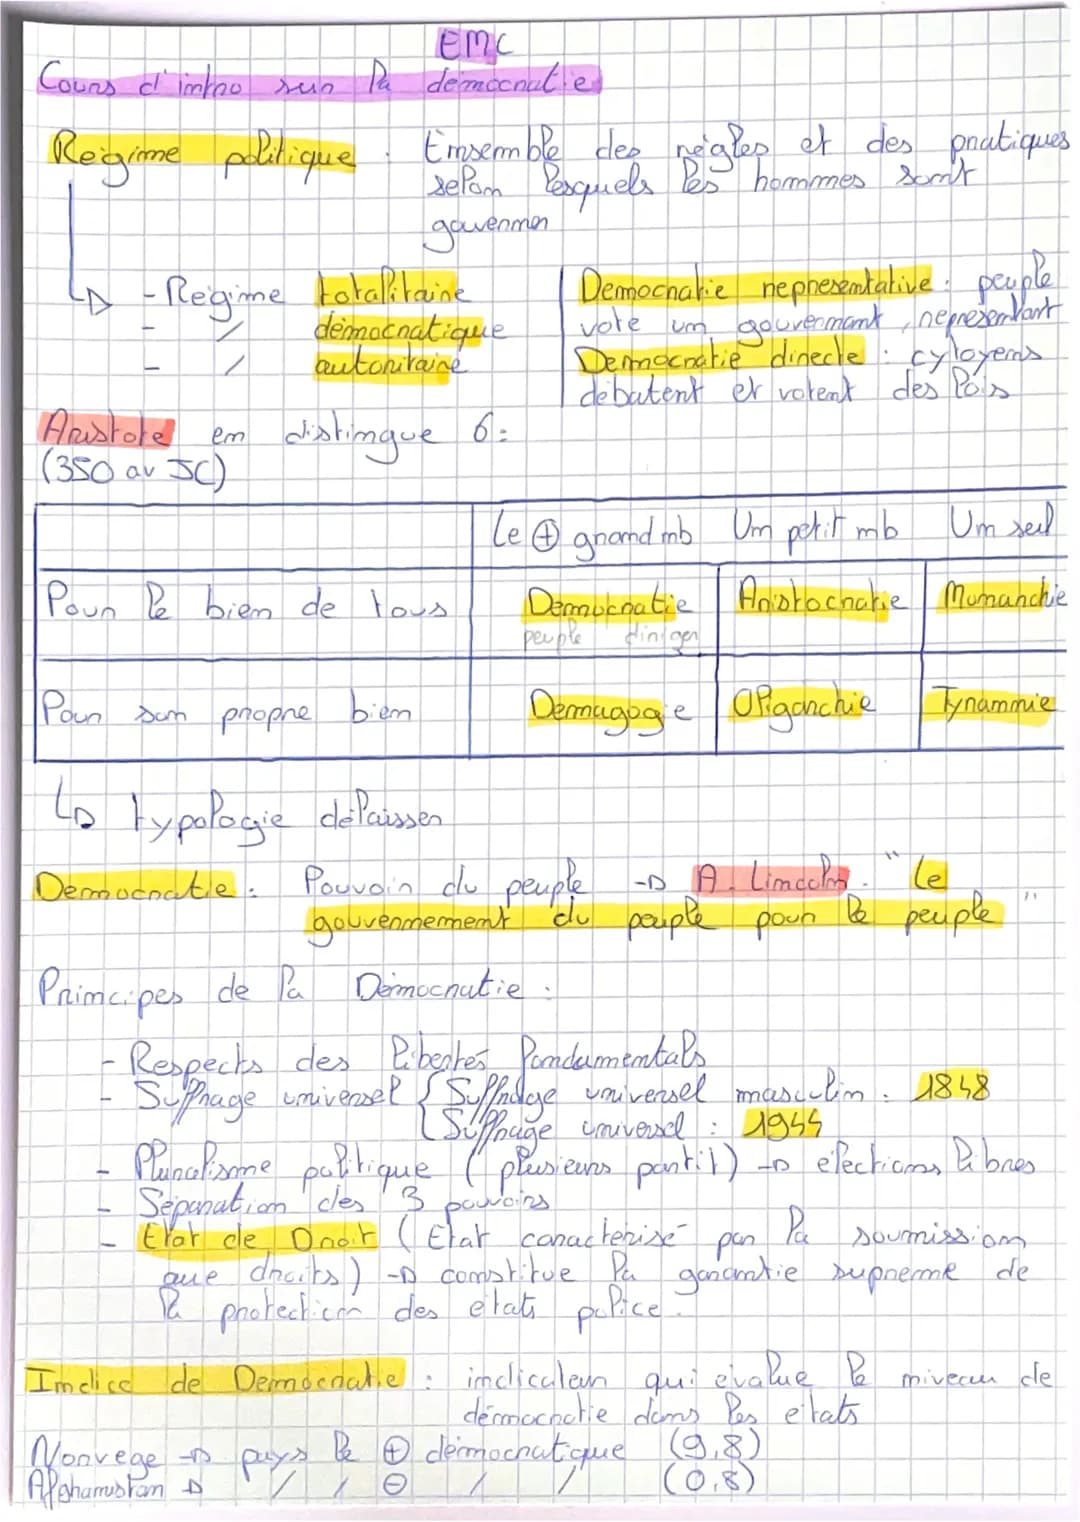 EMC
Cours d'intro sur la démocratie
Régime politique : Ensemble des règles et des pratiques
selon lesquels les hommes sont
gouverner
- Régime totalitaire
- // démocratique
- // autoritaire
Democratie représentative : peuple
vote un gouvernant, représentant
Democratie directe : cytoyens
débatent et votent des lois
Aristote en distingue 6 :
(350 av JC)
Le ⊕ grand nb Un petit nb Un seul
Pour le bien de tous Démocratie Aristocratie Monarchie
peuple diriger
Pour son propre bien Démagogie Oligarchie Tyrannie
↳ typologie délaisser
Démocratie : Pouvoir du peuple → A. Lincoln. "Le
gouvernement du peuple pour le peuple"
Principes de la Démocratie :
- Respects des libertés fondamentals
- Suffrage universel { Suffrage universel masculin : 1848
Suffrage universel : 1944
- Pluralisme politique (plusieurs partit) → élections libres
- Séparation des 3 pouvoirs
- Etat de Droit (Etat caractérisé par la soumission
que droits) → constitue la garantie suprême de
la protection des états police.
Indice de Démocratie : indicateur qui évalue le niveau de
démocratie dans les états
Norvege → pays le ⊕ démocratique (9,8)
Afghanistan → // // ⊖ // (0,8)